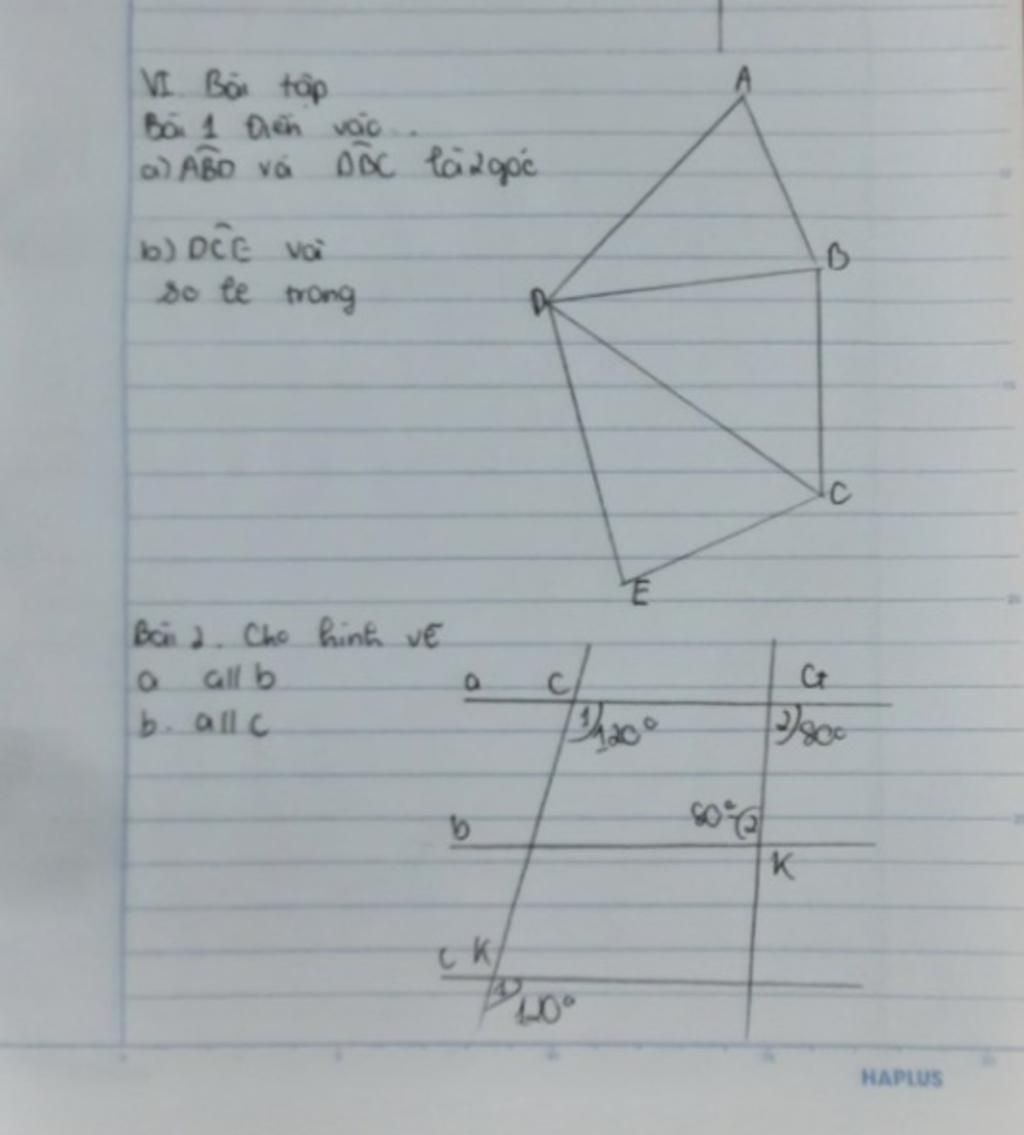 VI. Bài tập
Bài 1 Điền vào...
a) ABD và DBC là 2 góc
b) DCE và
so le trong
A
B
D
C
E
Bài 2. Cho hình vẽ
a a//b
b. a//c
a C G
1) 120° 2) 80°
b 80° 2
K
c K
1) 120°
HAPLUS